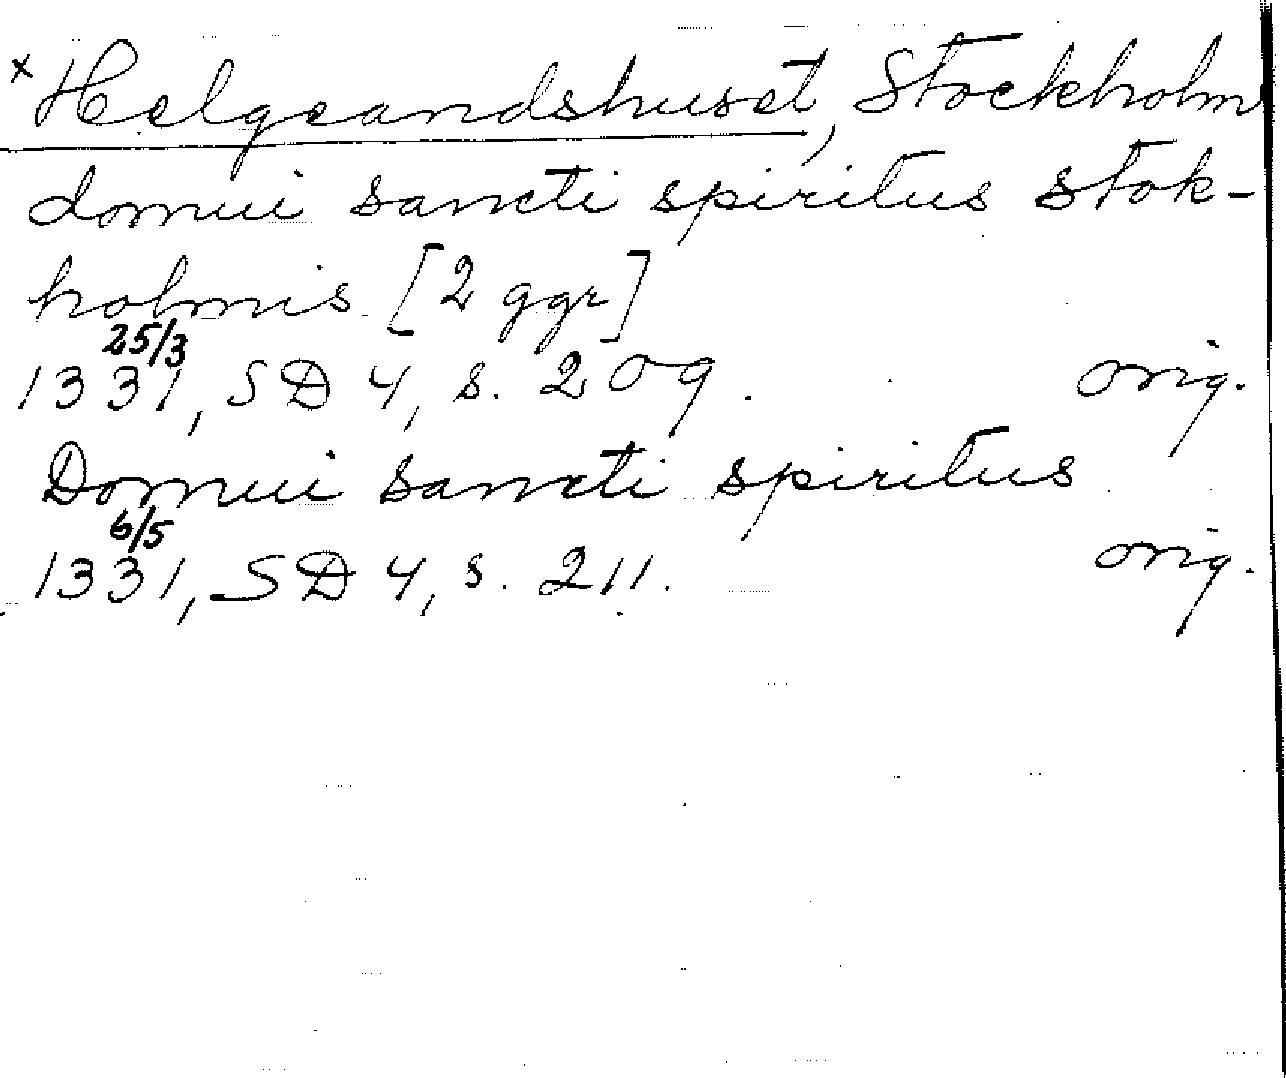 x Helgeandshuset, Stockholm
domui sancti spiritus stok-
holmis [2 ggr]
25/3
1331, SD 4, s. 209. orig.
Domui sancti spiritus
6/5
1331, SD 4, s. 211. orig.